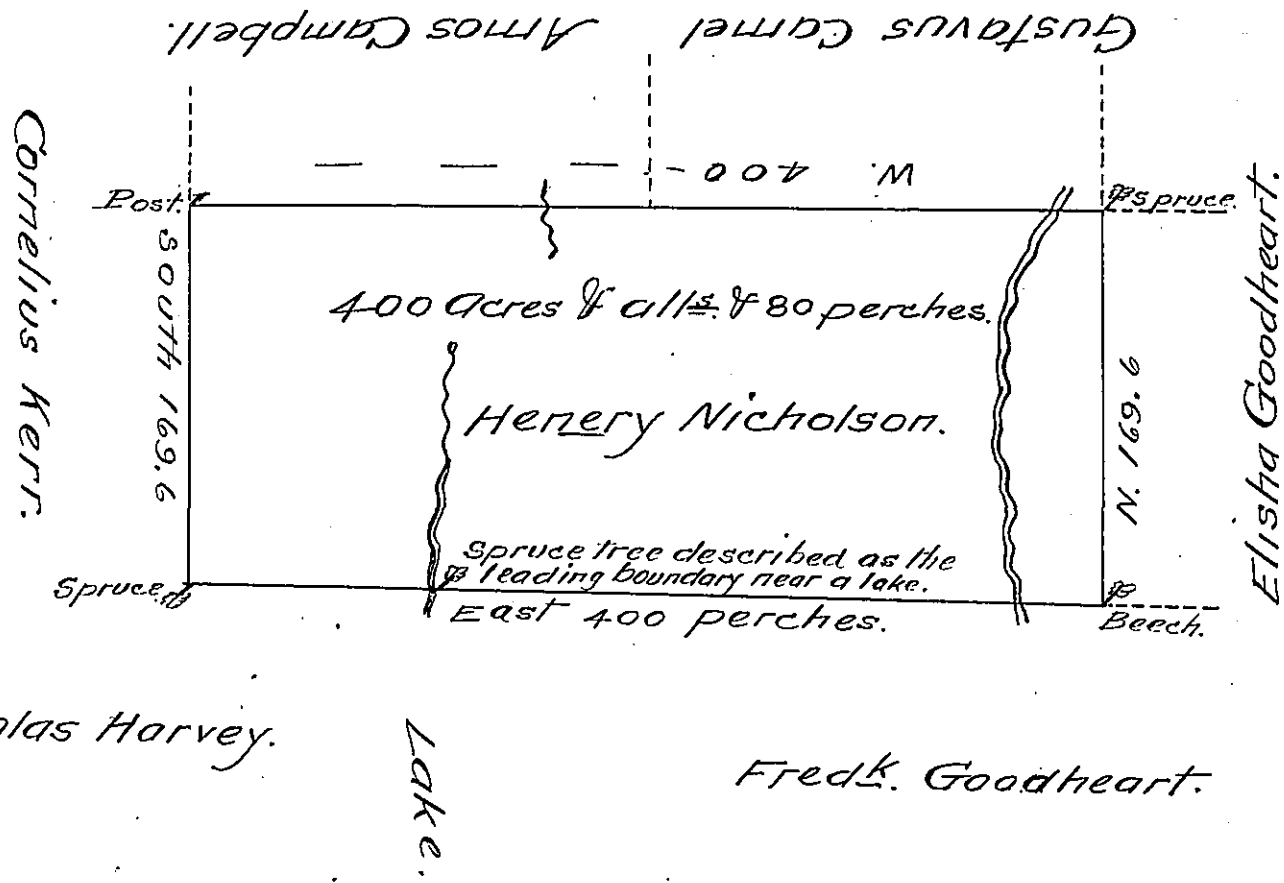 Amos Campbell.
Gustavus Camel
Cornelius Kerr.
W. 400 -
Post.
Spruce.
South 169.6
400 Acres & alls. & 80 perches.
Henery Nicholson.
N. 169.6
Elisha Goodheart.
Spruce tree described as the
leading boundary near a lake.
Spruce
East 400 perches.
Beech.
Harvey.
Lake.
Fredk. Goodheart.